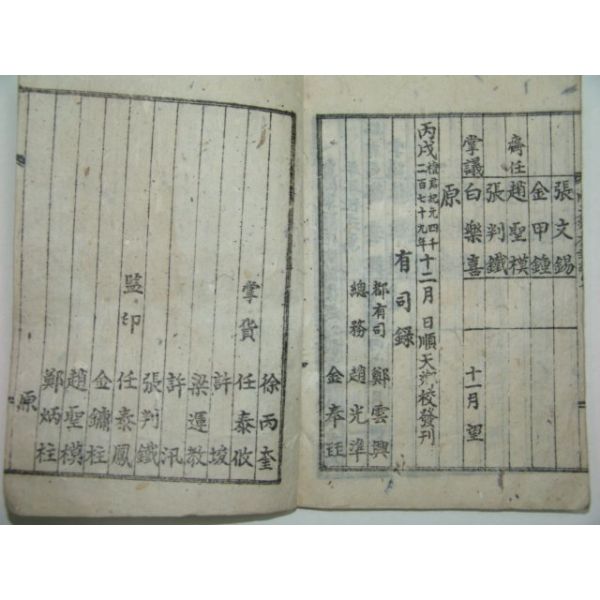 張文錫
金甲鍾
齋任 趙聖模
張判鐵
掌議 白樂喜 十一月 望
原
丙戌檀君紀元四千二百七十九年十二月 日順天鄕校發刊
有司錄
都有司 鄭雲興
總務 趙光準
金奉珏
徐丙奎
掌貨 任泰攸
許坡
梁運敎
許汛
張判鐵
監印 任泰鳳
金鏞柱
趙聖模
鄭炳柱
原